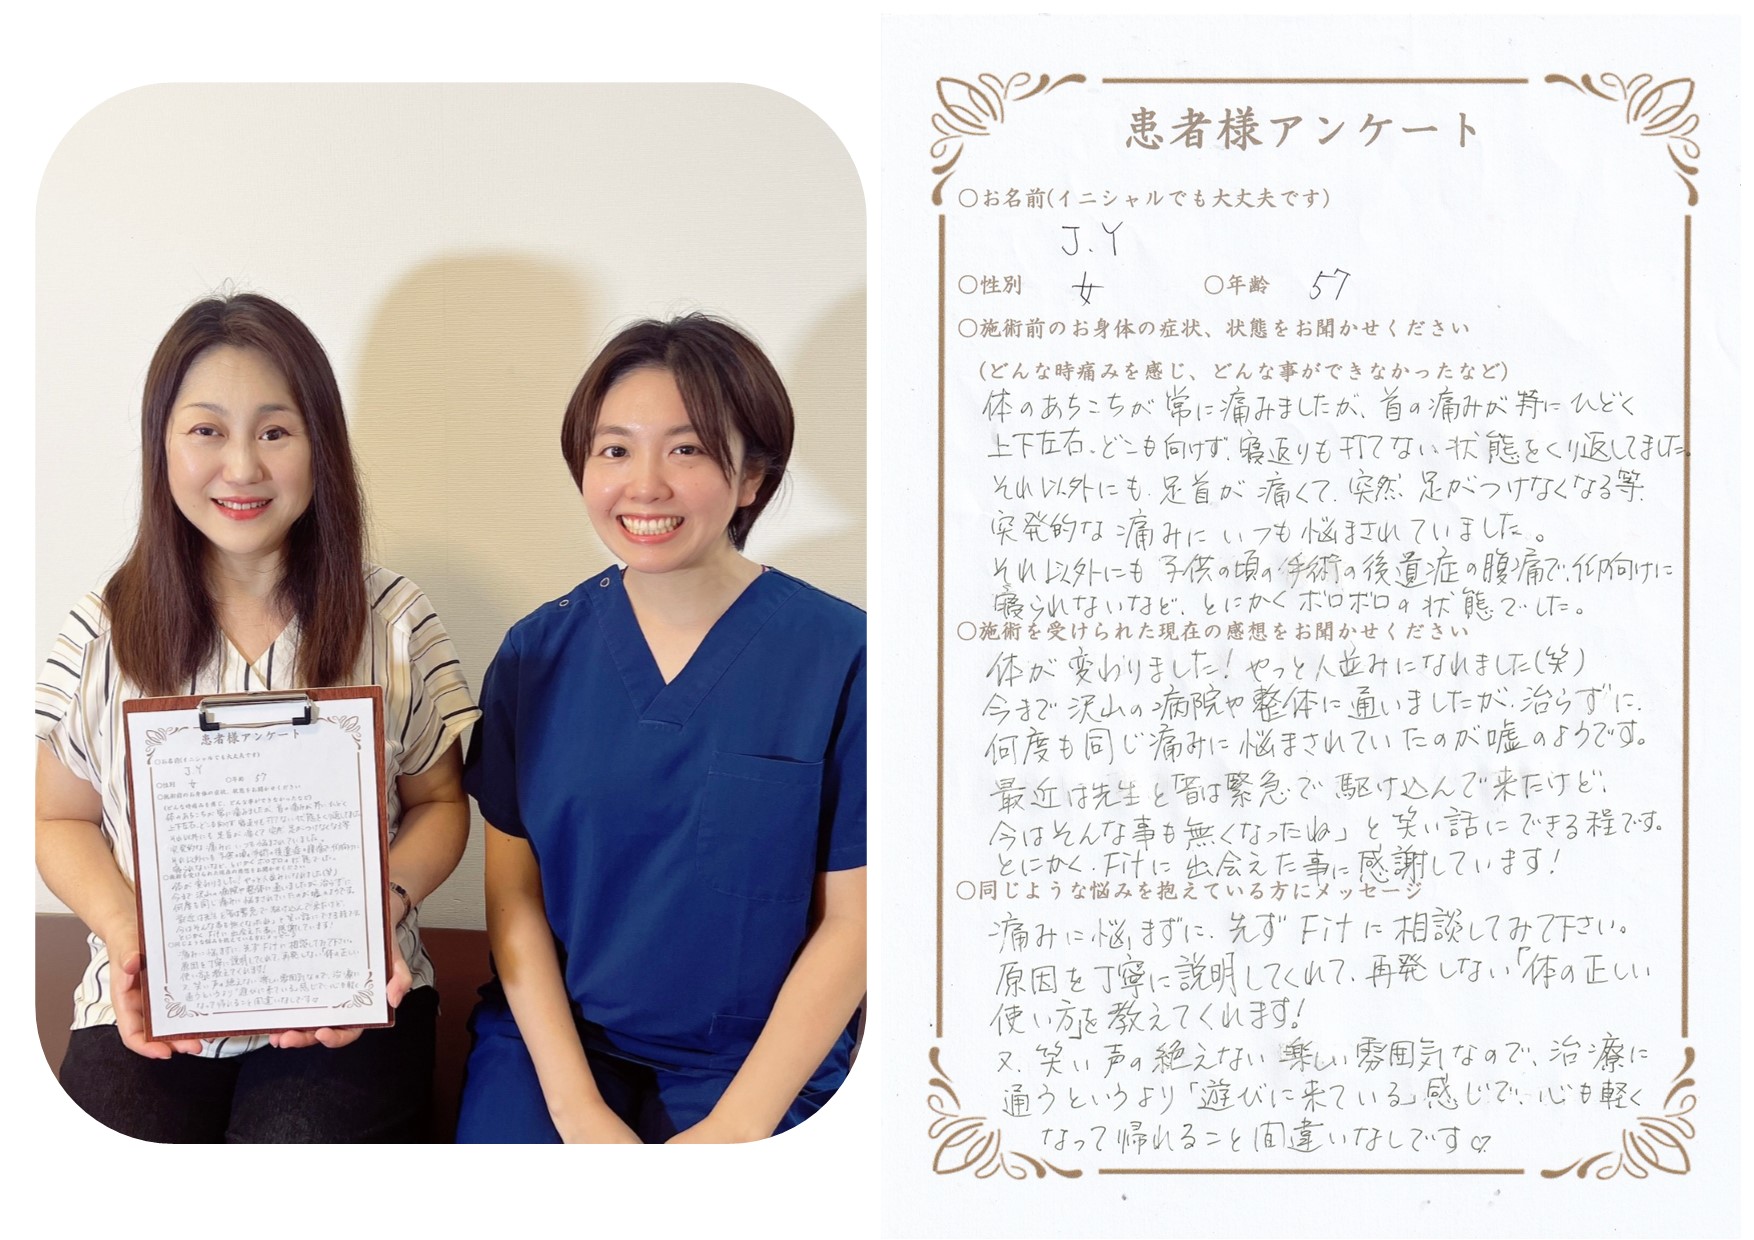 患者様アンケート
○お名前(イニシャルでも大丈夫です)
J.Y
○性別 女 ○年齢 57
○施術前のお身体の症状、状態をお聞かせください
(どんな時痛みを感じ、どんな事ができなかったなど)
体のあちこちが常に痛みましたが、首の痛みが特にひどく
上下左右、どこも向けず、寝返りも打てない状態をくり返してました。
それ以外にも、足首が痛くて、突然足がつけなくなる等、
突発的な痛みにいつも悩まされていました。
それ以外にも子供の頃の手術の後遺症の腹痛で、仰向けに
寝られないなど、とにかくボロボロの状態でした。
○施術を受けられた現在の感想をお聞かせください
体が変わりました!やっと人並みになれました(笑)
今まで沢山の病院や整体に通いましたが、治らずに、
何度も同じ痛みに悩まされていたのが嘘のようです。
最近は先生と「昔は緊急で駆け込んで来たけど、
今はそんな事も無くなったね」と笑い話にできる程です。
とにかく、Fitに出会えた事に感謝しています!
○同じような悩みを抱えている方にメッセージ
痛みに悩まずに、先ずFitに相談してみて下さい。
原因を丁寧に説明してくれて、再発しない「体の正しい
使い方」を教えてくれます!
又、笑い声の絶えない楽しい雰囲気なので、治療に
通うというより「遊びに来ている」感じで、心も軽く
なって帰れること間違いなしです♡